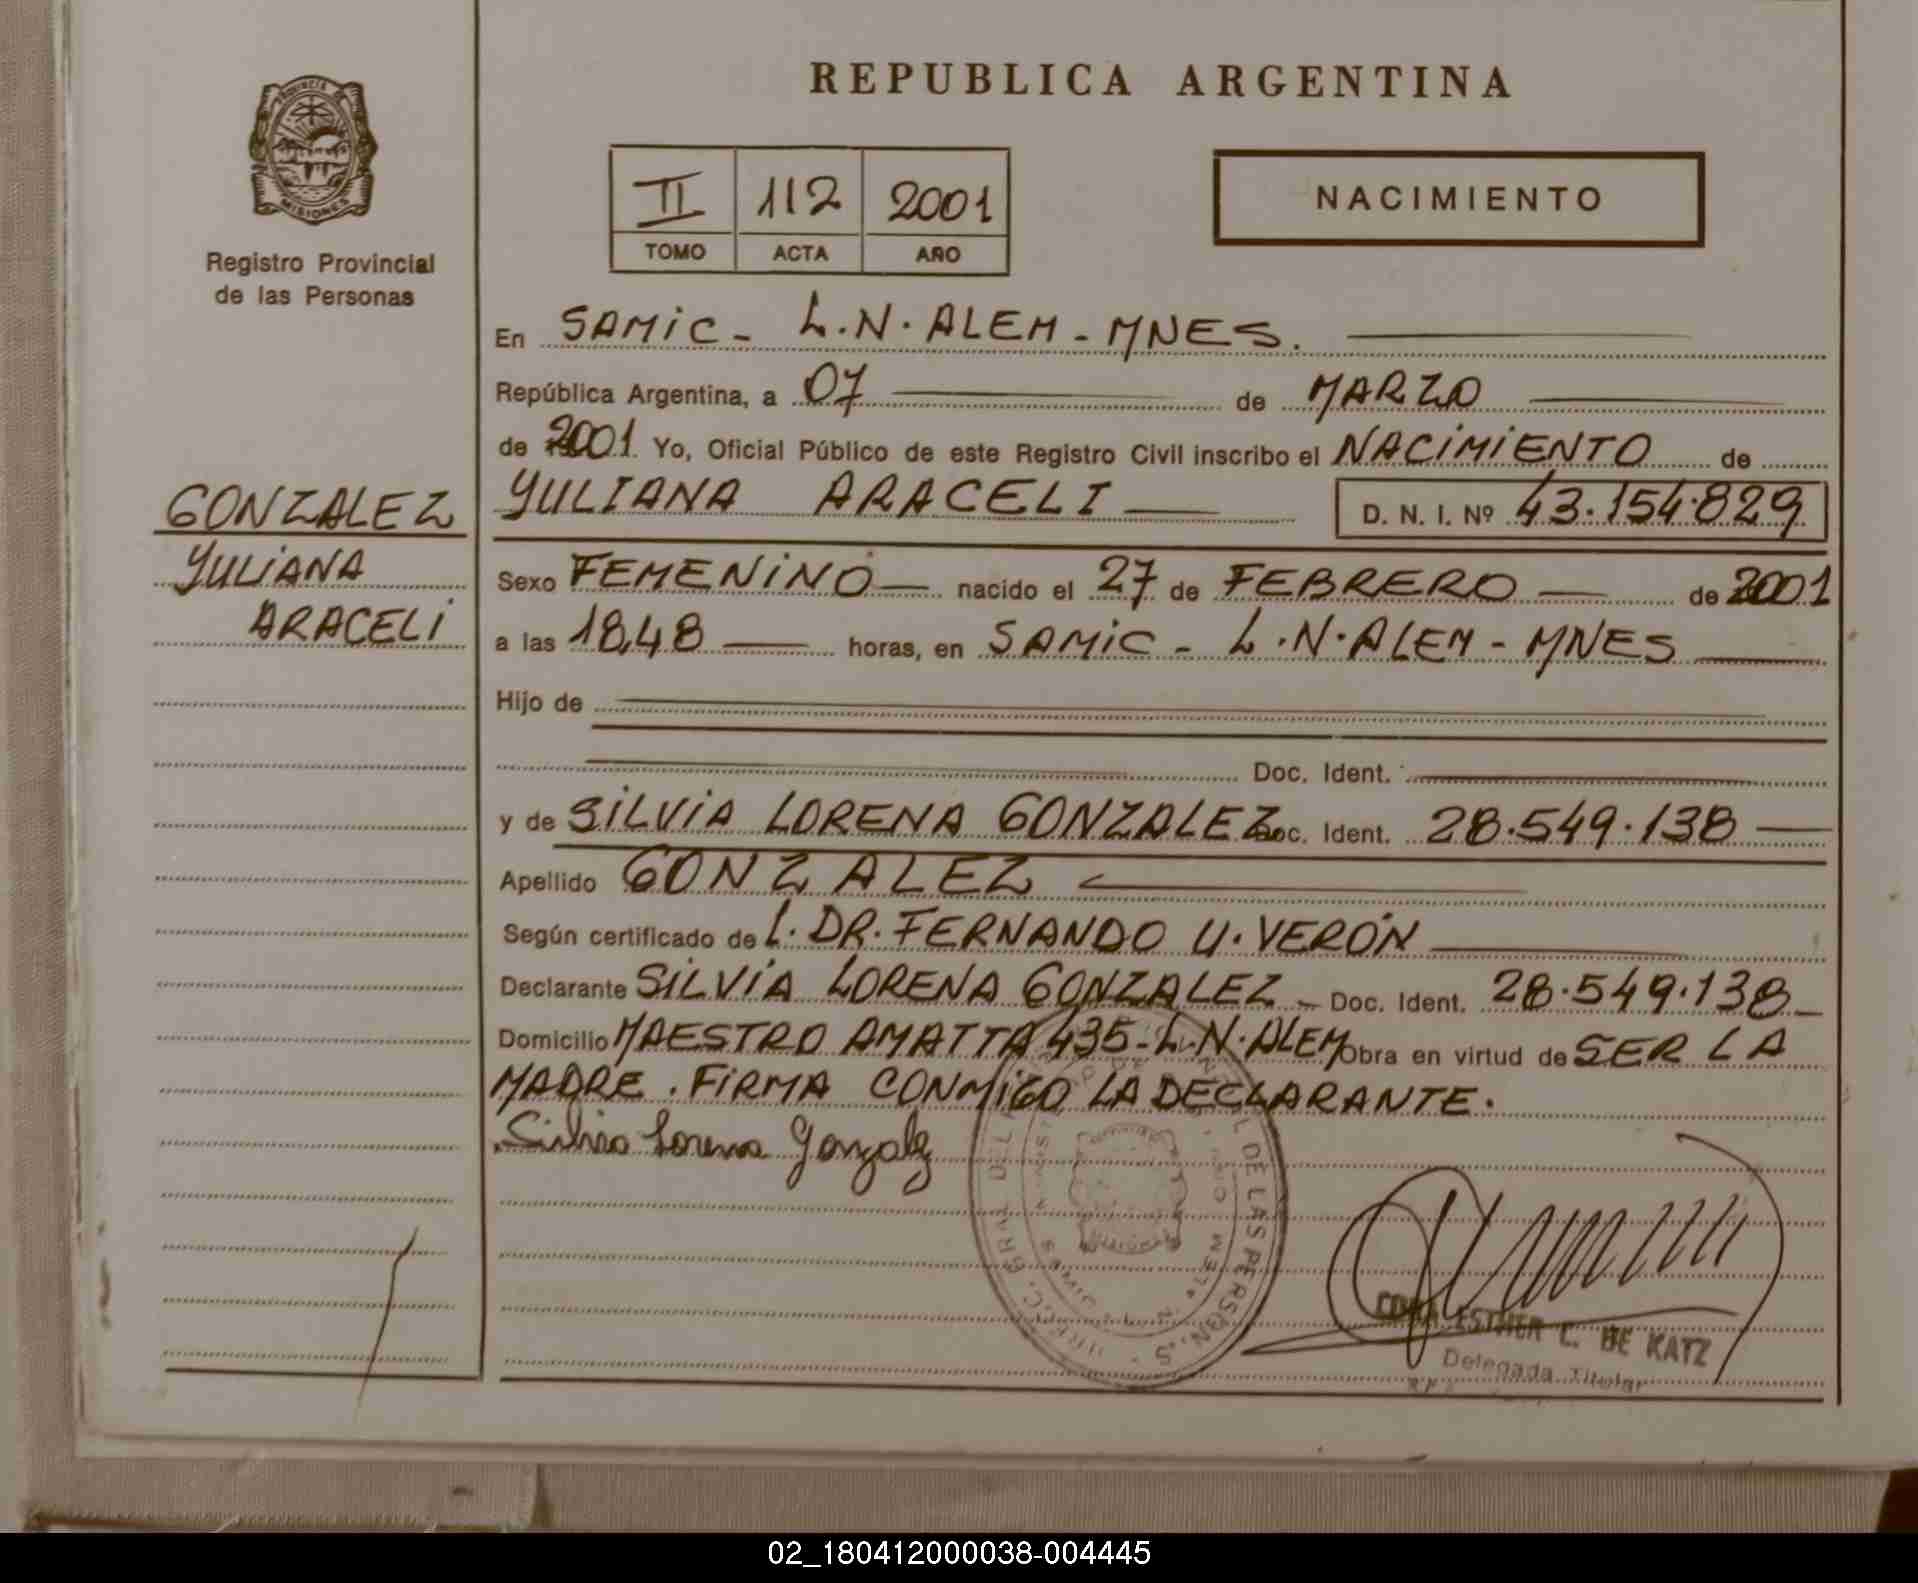 REPUBLICA ARGENTINA
PROVINCIA DE
MISIONES
Registro Provincial
de las Personas
II 112 2001
TOMO ACTA AÑO
NACIMIENTO
En SAMIC - L.N. ALEM - MNES.
República Argentina, a 07 de MARZO
de 2001 Yo, Oficial Público de este Registro Civil inscribo el NACIMIENTO de
GONZALEZ
YULIANA
ARACELI
YULIANA ARACELI D. N. I. Nº 43.154.829
Sexo FEMENINO nacido el 27 de FEBRERO de 2001
a las 18,48 horas, en SAMIC - L.N. ALEM - MNES
Hijo de
Doc. Ident.
y de SILVIA LORENA GONZALEZ Doc. Ident. 28.549.138
Apellido GONZALEZ
Según certificado de L. DR. FERNANDO U. VERÓN
Declarante SILVIA LORENA GONZALEZ - Doc. Ident. 28.549.138
Domicilio MAESTRO AMATTA 435 - L.N. ALEM Obra en virtud de SER LA
MADRE. FIRMA CONMIGO LA DECLARANTE.
Silvia Lorena Gonzalez
DE LAS PERSONAS
ESTHER C. DE KATZ
Delegada Titular
02_180412000038-004445